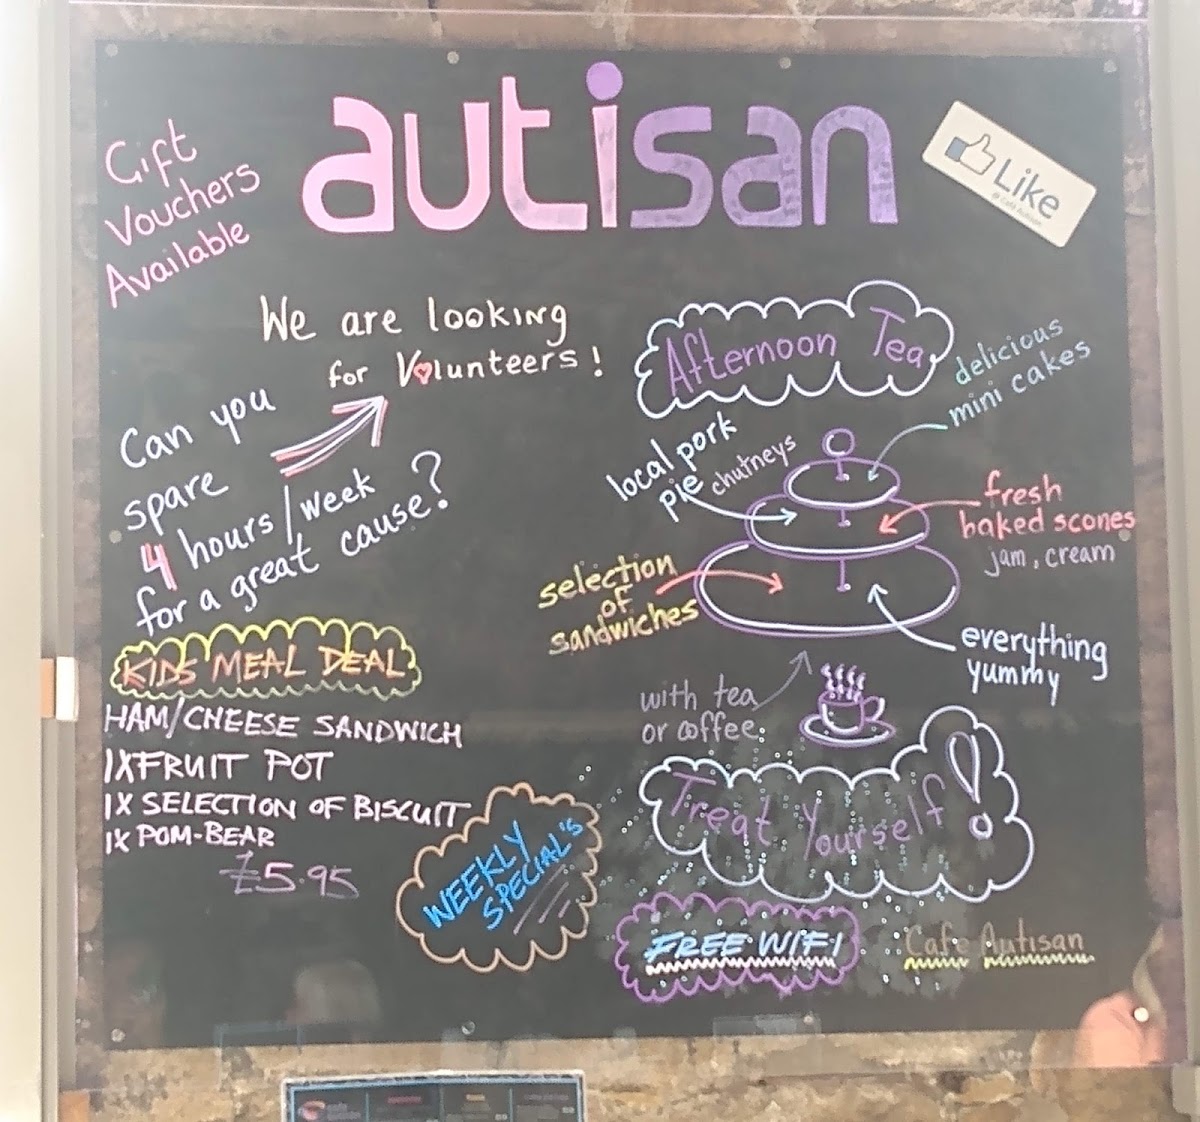 autisan
Gift
Vouchers
Available
Like
@ Café Autisan
We are looking
for Volunteers!
Can you
spare
4 hours/week
for a great cause?
KIDS MEAL DEAL
HAM/CHEESE SANDWICH
1XFRUIT POT
1X SELECTION OF BISCUIT
1X POM-BEAR
£5.95
WEEKLY
SPECIAL'S
Afternoon Tea
delicious
mini cakes
local pork
pie chutneys
fresh
baked scones
jam, cream
selection
of
sandwiches
everything
yummy
with tea
or coffee.
Treat Yourself!
FREE WIFI
Cafe Autisan